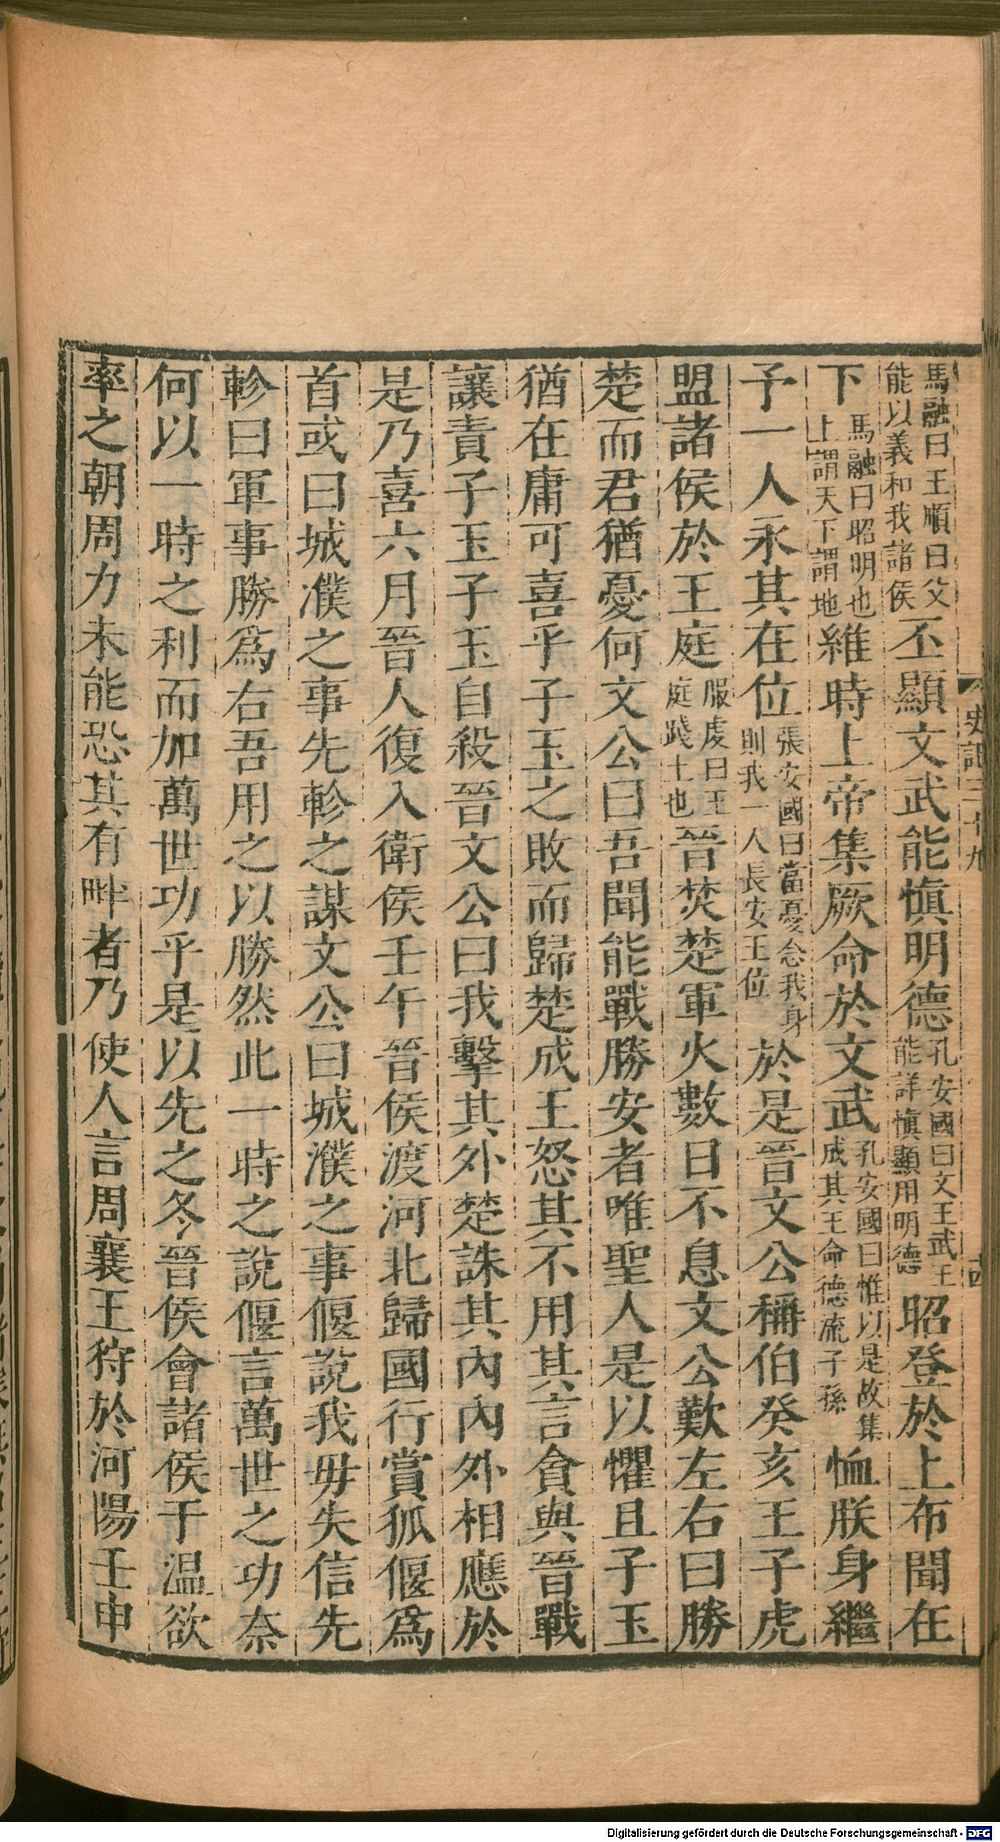 馬融曰王順曰父能以義和我諸侯丕顯文武能慎明德孔安國曰文王武王能詳慎顯用明德昭登於上布聞在
下馬融曰昭明也上謂天下謂地維時上帝集厥命於文武孔安國曰惟以是故集成其王命德流子孫恤朕身繼
予一人永其在位張安國曰當憂念我身則我一人長安王位於是晉文公稱伯癸亥王子虎
盟諸侯於王庭服虔曰王庭踐土也晉焚楚軍火數日不息文公歎左右曰勝
楚而君猶憂何文公曰吾聞能戰勝安者唯聖人是以懼且子玉
猶在庸可喜乎子玉之敗而歸楚成王怒其不用其言貪與晉戰
讓責子玉子玉自殺晉文公曰我擊其外楚誅其內內外相應於
是乃喜六月晉人復入衛侯壬午晉侯渡河北歸國行賞狐偃為
首或曰城濮之事先軫之謀文公曰城濮之事偃說我毋失信先
軫曰軍事勝爲右吾用之以勝然此一時之說偃言萬世之功奈
何以一時之利而加萬世功乎是以先之冬晉侯會諸侯于温欲
率之朝周力未能恐其有畔者乃使人言周襄王狩於河陽壬申
史記三十九
十四
Digitalisierung gefördert durch die Deutsche Forschungsgemeinschaft - DFG